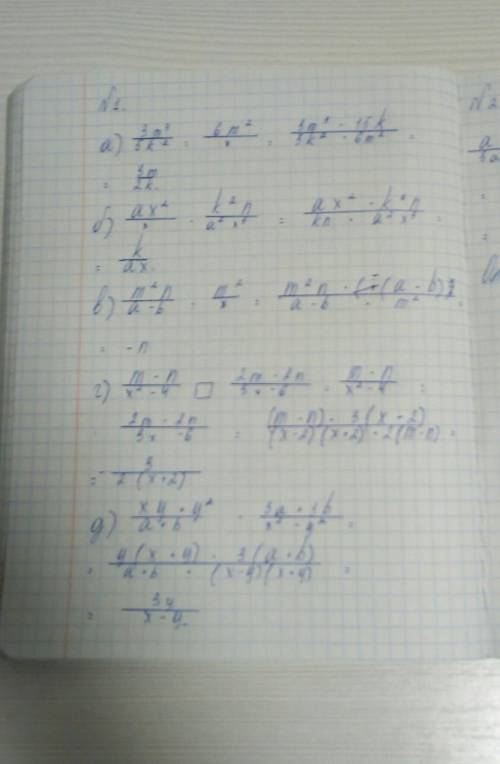 №1.
а) 3m³/5k² : 6m²/x = 3m³ · 15k / 5k² · 6m² =
= 3m/2k.
б) ax²/x · k²n/a²x³ = ax² · k²n / kn · a²x³ =
= k/ax.
в) m²n/a-b : m²/x = m²n · (-(a-b)) / a-b · m² =
= -n
г) m-n/x²-4 □ 2m-2n/3x-6 = m-n/x²-4 :
2m-2n/3x-6 = (m-n) · 3(x-2) / (x-2)(x+2) · 2(m-n) =
= 3/2(x+2)
д) xy+y²/a+b · 3a+3b/x²-y² =
= y(x+y) · 3(a+b) / a+b · (x-y)(x+y) =
= 3y/x-y.
№2